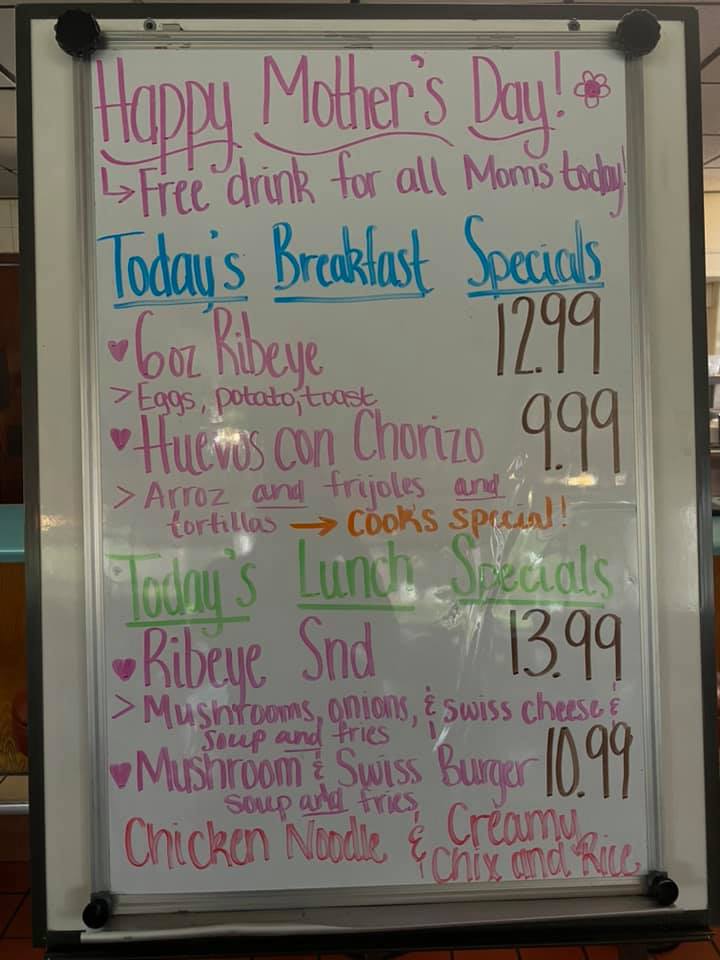 Happy Mother's Day!
↳ Free drink for all Moms today!
Today's Breakfast Specials
♥ 6oz Ribeye 12.99
> Eggs, potato, toast
♥ Huevos con Chorizo 9.99
> Arroz and frijoles and
tortillas → Cooks special!
Today's Lunch Specials
♥ Ribeye Snd 13.99
> Mushrooms, onions, & swiss cheese &
soup and fries
♥ Mushroom & Swiss Burger 10.99
soup and fries
Chicken Noodle & Creamy
Chix and Rice